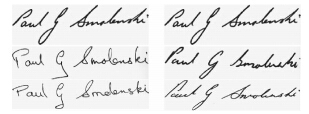 Paul G Smolenski Paul G Smolenski
Paul G Smolenski Paul G Smolenski
Paul G Smolenski Paul G Smolenski